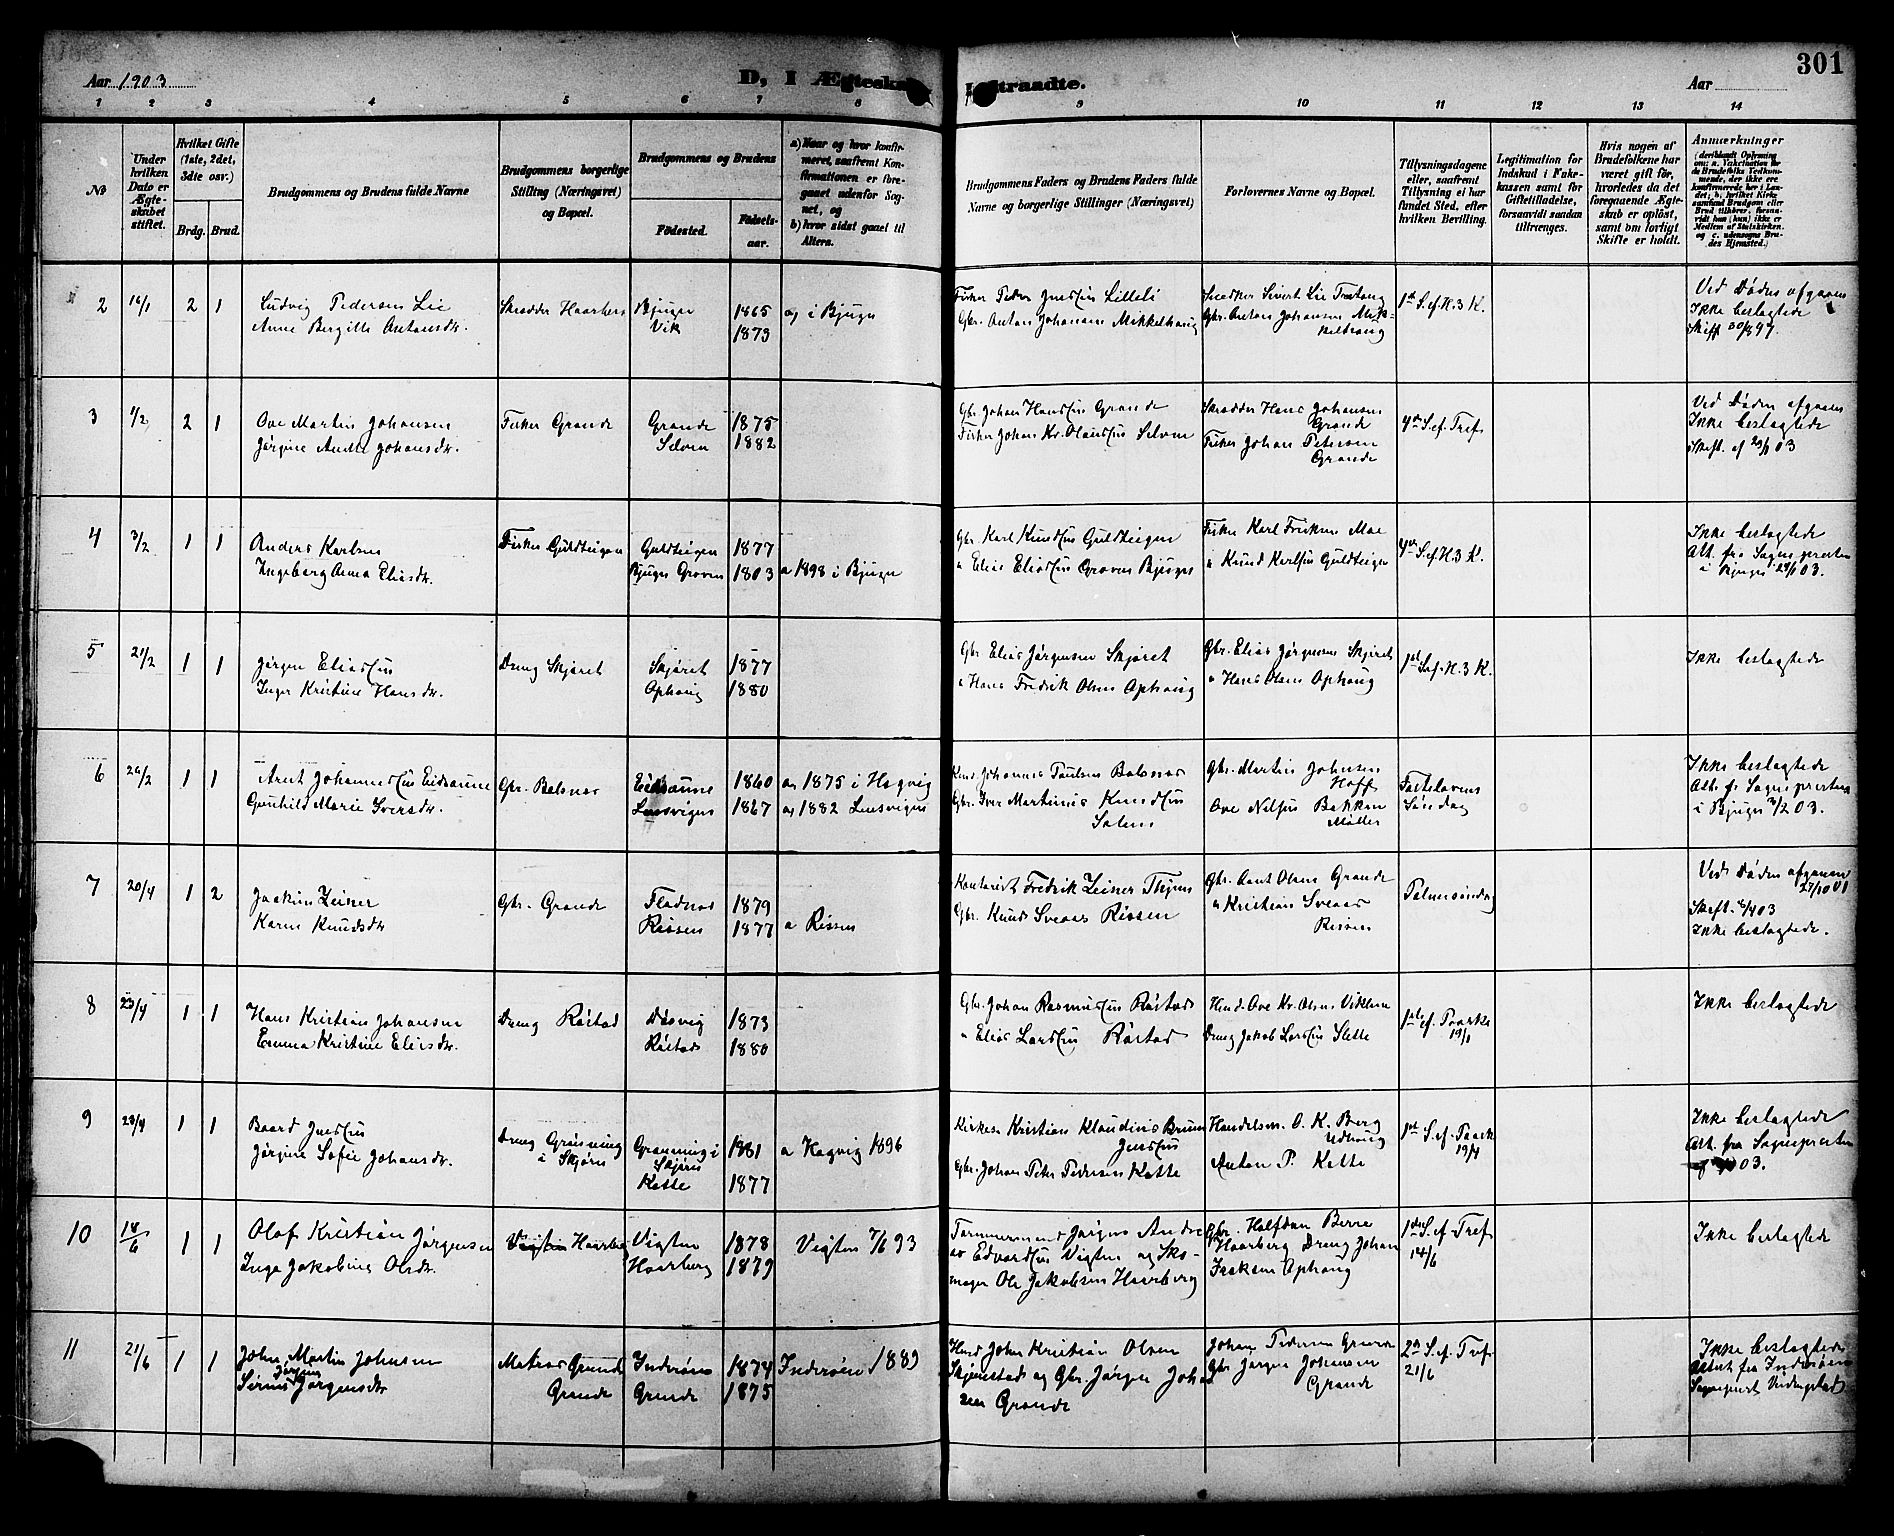 301
Aar 1903
D, I Ægteska
traadte.
Aar
1 2 3 4 5 6 7 8 9 10 11 12 13 14
No
Under hvilken Dato er Ægteskabet stiftet.
Hvilket Gifte (1ste, 2det, 3die osv.)
Brdg. Brud.
Brudgommens og Brudens fulde Navne
Brudgommens borgerlige Stilling (Næringsvei) og Bopæl.
Brudgommens og Brudens
Fødested.
Fødselsaar.
a) Naar og hvor konfirmeret, saafremt Konfirmationen er foregaaet udenfor Sognet, og
b) hvor sidst gaaet til Alters.
Brudgommens Faders og Brudens Faders fulde Navne og borgerlige Stillinger (Næringsvei)
Forlovernes Navne og Bopæl.
Tillysningsdagene eller, saafremt Tillysning ei har fundet Sted, efter hvilken Bevilling.
Legitimation for Indskud i Enkekassen samt for Giftetilladelse, forsaavidt saadan tiltrænges.
Hvis nogen af Brudefolkene har været gift før, hvorledes da det foregaaende Ægteskab er opløst, samt om lovligt Skifte er holdt.
Anmærkninger
2 16/1 2 1 Ludvig Pedersen Lie
Anne Bergitte Antonsdr.
Skrædder Haarberg
Bjugn 1865
Vik 1873
og i Bjugn
Fisker Peder Jensen Lilleli
Gbr. Anton Johansen Mikkelhaug
Snedker Sivert Lie
Gbr. Anton Johansen Mikkelhaug
1st S. ef. H. 3 K.
Ved Døden afgaaen
Ikke beslægtede
Skift 30/8 97.
3 1/2 2 1 Ove Martin Johansen
Jørgine Andrea Johansdr.
Fisker Grande
Grande 1875
Selven 1882
Gbr. Johan Hansen Grande
Fisker Johan Kr. Olausen Selven
Skrædder Hans Johansen Grande
Fisker Johan Petersen Grande
4de S. ef. Tref.
Ved Døden afgaaen
Ikke beslægtede
Skift. af 29/1 03
4 3/2 1 1 Anders Karlsen
Ingeborg Anna Eliasdr.
Fisker Guldteigen
Guldteigen 1877
Bjugn Graven 1803
a 1898 i Bjugn
Gbr. Karl Knudsen Guldteigen
" Elias Eliassen Graven Bjugn
Fisker Karl Eriksen Moe
" Knud Karlsen Guldteigen
4de S. ef. H. 3 K.
Ikke beslægtede
Att. fra Sognepresten
i Bjugn 29/1 03.
5 21/2 1 1 Jørgen Eliassen
Inger Kristine Hansdr.
Dreng Skjøret
Skjøret 1877
Ophaug 1880
Gbr Elias Jørgensen Skjøret
" Hans Fredrik Olsen Ophaug
Gbr. Elias Jørgensen Skjøret
" Hans Olsen Ophaug
1st S. ef. H. 3 K.
Ikke beslægtede
6 26/2 1 1 Arnt Johannessen Eidsaune
Gunhild Marie Iversdr.
Gbr. Balsnes
Eidsaune 1860
Lensvigen 1867
a 1875 i Hegvig
a 1882 Lensvigen
Johannes Paulsen Balsnes
Gbr. Iver Martinus Knudsen
Gbr. Martin Johnsen Hoff
Ove Nilsen Bakken
Fastelavens Søndag
Ikke beslægtede
Att. f. Sognepresten
i Bjugn 3/2 03.
7 20/4 1 2 Joakim Zeiner
Karen Knudsdr
Gbr. Grande
Fladnes 1879
Rissen 1877
a Rissen
Fredrik Zeiner
Gbr. Knud Sveaas Rissen
Gbr. Arnt Olsen Grande
" Kristian Sveaas Rissen
Palmesøndag
Ved Døden afgaaen
Ikke beslægtede.
8 23/4 1 1 Hans Kristian Johansen
Emma Kristine Eliasdr.
Dreng Røstad
Døsvig 1873
Røstad 1880
Gbr. Johan Rasmussen Røstad
" Elias Larssen Røstad
Ove Kr. Olsen Viklem
Dreng Jakob Larssen Slette
1ste S. ef. Paaske
19/1
Ikke beslægtede
9 23/4 1 1 Baard Jenssen
Jørgine Sofie Johansdr.
Dreng Grønning
i Skjørn
Grønning i 1881
Skjørn
Kotte 1877
a Hegvig 1896
Kirkes. Kristian Klaudius Bruun Jenssen
Gbr. Johan Peter Pedersen Kotte
Handelsm. O. K. Berg Udhaug
Anton P. Kotte
1st S. ef. Paask
19/4
Ikke beslægtede
Att. fra Sognepresten
03.
10 18/6 1 1 Olaf Kristian Jørgensen
Inga Jakobine Olsdr.
Haarberg
Vigten 1878
Haarberg 1879
Vigten 7/6 93
Tømmermand Jørgen Andreas
Edvardsen Vigten og Skomager
Ole Jakobsen Haarberg
Gbr. Halfdan Berre
Haarberg Dreng Johan
Isaksen Ophaug
1ste S. ef. Tref
14/6
Ikke beslægtede
11 21/6 1 1 John Martin Johnsen
Jørgensdr
Matros Grande
Grande
Inderøen 1874
Grande 1875
Inderøen 1889
John Kristian Olsen
og Gbr. Jørgen Johansen
Grande
Johan Pedersen Grande
Gbr Jørgen Johansen
Grande
2den S. ef. Tref.
21/6
Ikke beslægtede
Attest fra Inderøen